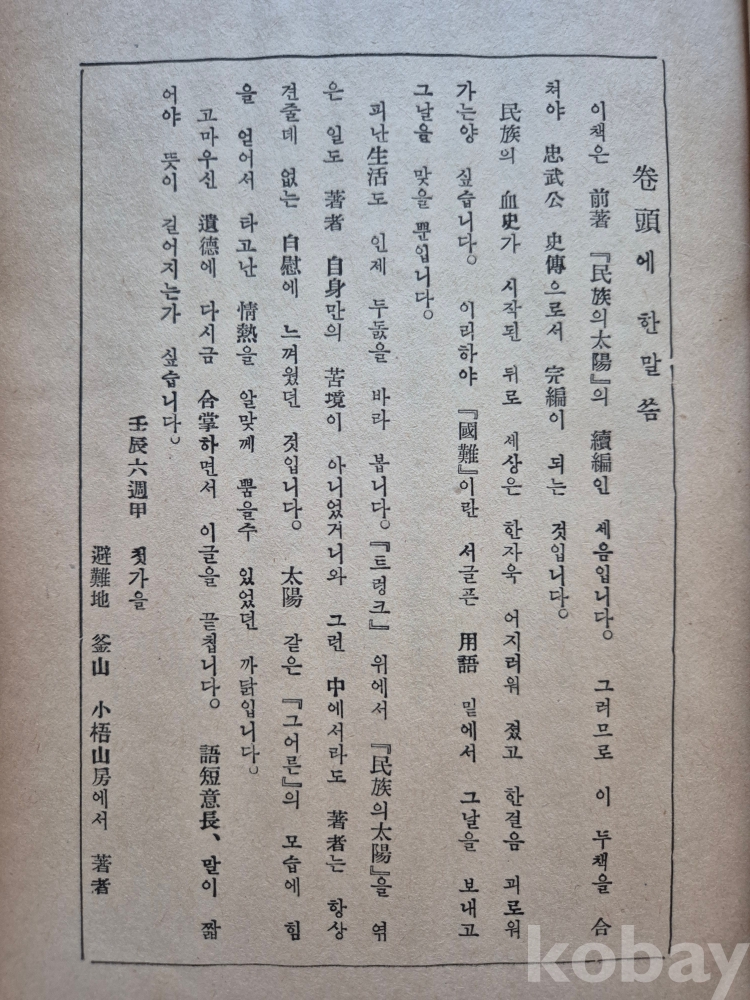 卷頭에 한말씀
이책은 前著 『民族의太陽』의 續編인 세음입니다。 그러므로 이 두책을 合
처야 忠武公 史傳으로서 完編이 되는 것입니다。
民族의 血史가 시작된 뒤로 세상은 한자욱 어지러워 졌고 한걸음 괴로워
가는양 싶습니다。 이리하야 『國難』이란 서글픈 用語 밑에서 그날을 보내고
그날을 맞을 뿐입니다。
피난生活도 인제 두돐을 바라 봅니다。『트렁크』 위에서 『民族의太陽』을 엮
은 일도 著者 自身만의 苦境이 아니었거니와 그런 中에서라도 著者는 항상
견줄데 없는 自慰에 느껴웠던 것입니다。 太陽 같은 『그어른』의 모습에 힘
을 얻어서 타고난 情熱을 알맞께 뿜을수 있었던 까닭입니다。
고마우신 遺德에 다시금 合掌하면서 이글을 끝칩니다。 語短意長、말이 짧
어야 뜻이 길어지는가 싶습니다。
壬辰六週甲 첫가을
避難地 釜山 小梧山房에서 著者
kobay